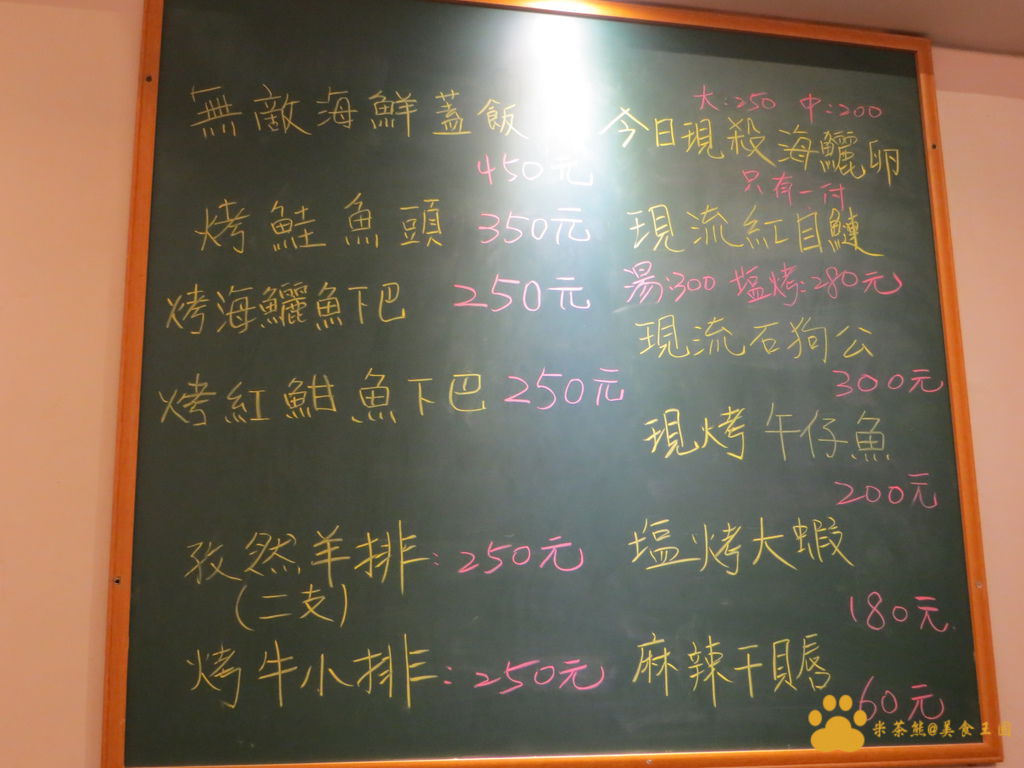 無敵海鮮蓋飯
450元
烤鮭魚頭 350元
烤海鱺魚下巴 250元
烤紅魽魚下巴 250元
孜然羊排:250元
(二支)
烤牛小排:250元
大:250 中:200
今日現殺海鱺卵
只有一付
現流紅目鰱
湯:300 塩烤:280元
現流石狗公
300元
現烤午仔魚
200元
塩烤大蝦
180元
麻辣干貝唇
60元
米茶熊@美食王國